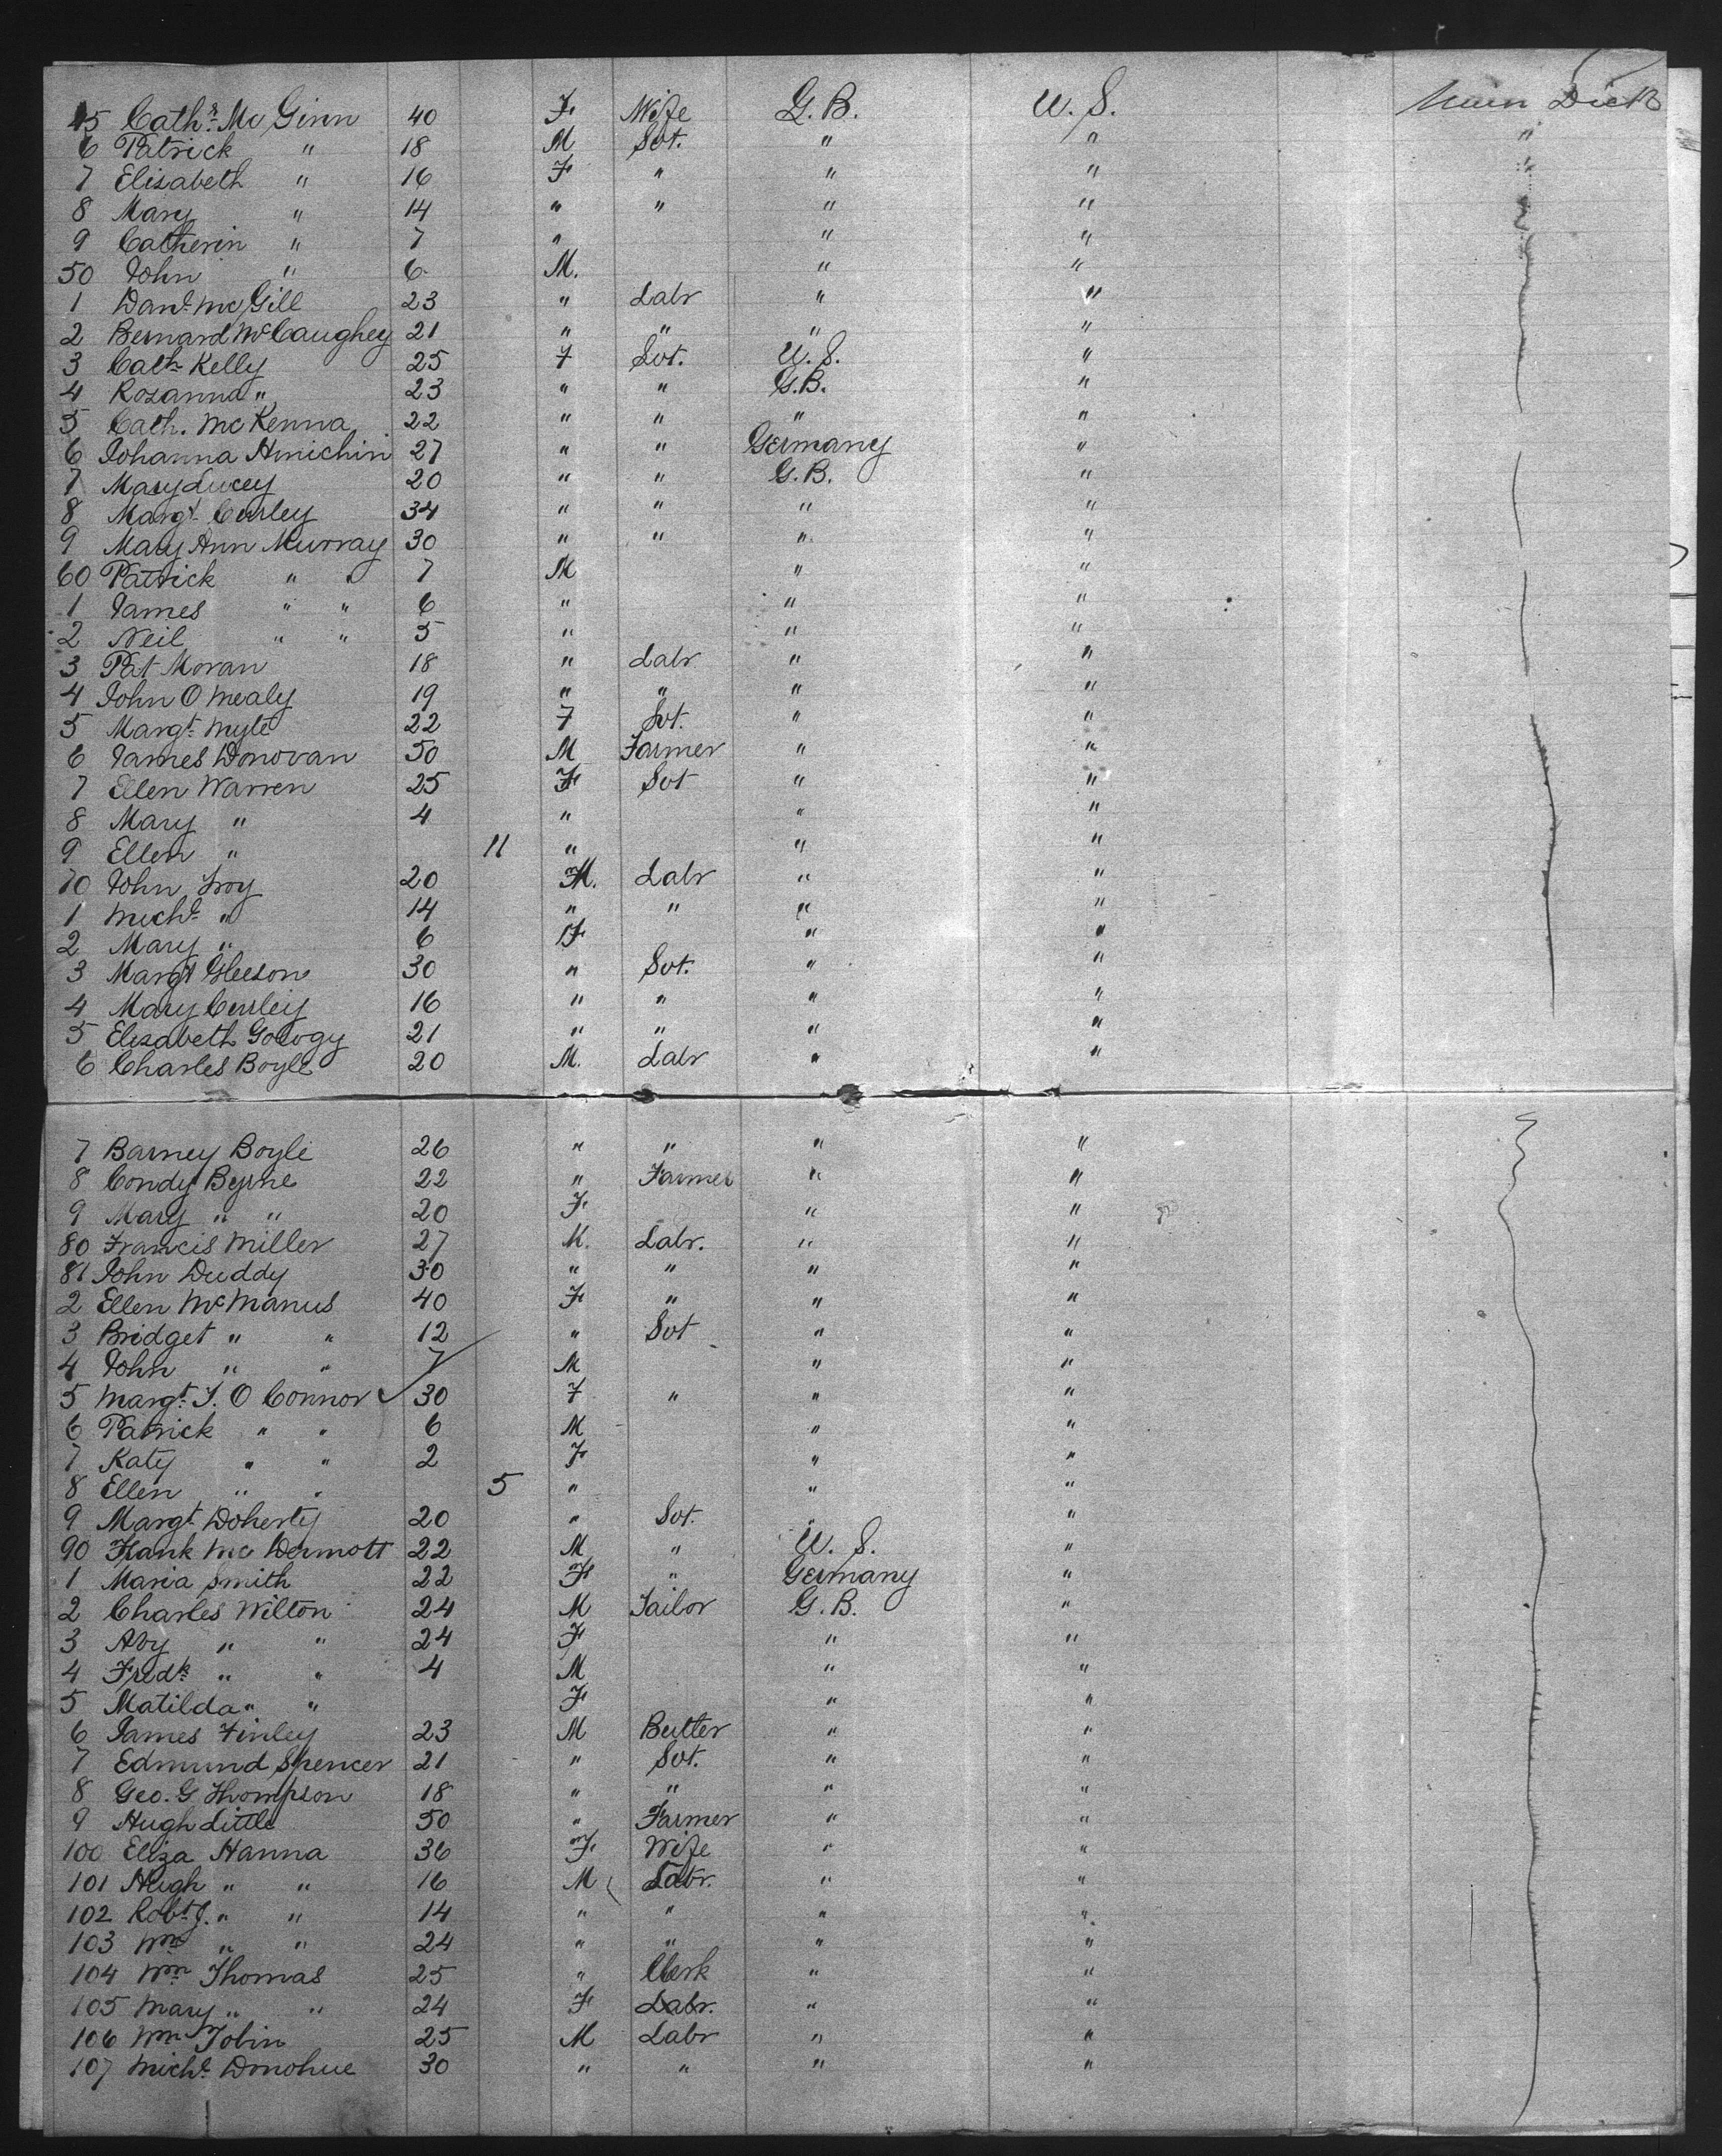 45 Cathr. Mc Ginn 40 F Wife G. B. U. S. Main Deck
6 Patrick " 18 M Svt. " " "
7 Elisabeth " 16 F " " " "
8 Mary " 14 " " " "
9 Catherin " 7 " " "
50 John " 6 M. " "
1 Danl. Mc Gill 23 " Labr " "
2 Bernard McCaughey 21 " " " "
3 Cath. Kelly 25 F Svt. U. S. "
4 Rosanna " 23 " " G.B. "
5 Cath. McKenna 22 " " " "
6 Johanna Hinichin 27 " " Germany "
7 Mary Lucey 20 " " G. B. "
8 Margt. Curley 34 " " " "
9 Mary Ann Murray 30 " " " "
60 Patrick " " 7 M " "
1 James " " 6 " " "
2 Neil " " 5 " " "
3 Pat Moran 18 " Labr " "
4 John O Mealy 19 " " " "
5 Margt. Myle 22 F Svt. " "
6 James Donovan 50 M Farmer " "
7 Ellen Warren 25 F Svt " "
8 Mary " 4 " " "
9 Ellen " 11 " " "
70 John Troy 20 M. Labr " "
1 Michl. " 14 " " " "
2 Mary " 6 F " "
3 Margt Gleeson 30 " Svt. " "
4 Mary Curley 16 " " " "
5 Elesabeth 21 " " " "
6 Charles Boyle 20 M. Labr " "
7 Barney Boyle 26 " " " "
8 Condy Byrne 22 " Farmer " "
9 Mary " " 20 F " "
80 Francis Miller 27 M. Labr. " "
81 John Duddy 30 " " " "
2 Ellen McManus 40 F " " "
3 Bridget " " 12 " Svt " "
4 John " " 7 M " "
5 Margt. J. O Connor 30 F " " "
6 Patrick " " 6 M " "
7 Katy " " 2 F " "
8 Ellen " " 5 " " "
9 Margt. Doherty 20 " Svt. " "
90 Frank Mc Dermott 22 M " U. S. "
1 Maria Smith 22 F " Germany "
2 Charles Wilton 24 M Tailor G. B. "
3 Aby " " 24 F " "
4 Fredk " " 4 M " "
5 Matilda " " F " "
6 James Finley 23 M Butler " "
7 Edmund Spencer 21 " Svt. " "
8 Geo. G Thompson 18 " " " "
9 Hugh Little 50 " Farmer " "
100 Eliza Hanna 36 F Wife " "
101 Hugh " " 16 M Labr. " "
102 Robt J. " " 14 " " " "
103 Wm " " 24 " " " "
104 Wm Thomas 25 " Clerk " "
105 Mary " " 24 F Labr. " "
106 Wm Tobin 25 M Labr " "
107 Michl. Donohue 30 " " " "